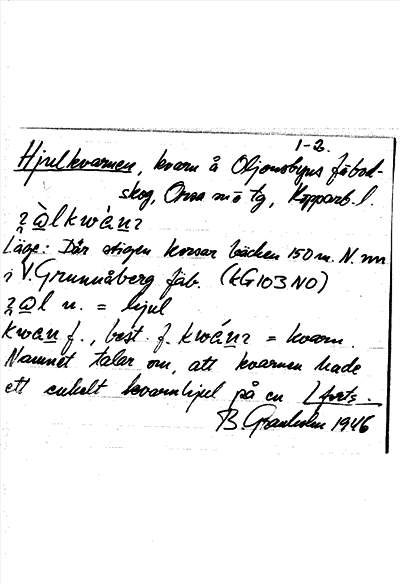 1-2.
Hjulkvarnen, kvarn å Oljonsbyns fäbod-
skog, Orsa sn o tg, Kopparb. l.
Läge: Där stigen korsar bäcken 150 m. N. om
V. Grunuåberg fäb. (KG103NO)
n. = hjul
f., best. f. = kvarn.
Namnet talar om, att kvarnen hade
ett enkelt kvarnhjul på en forts.
B. Granholm 1946